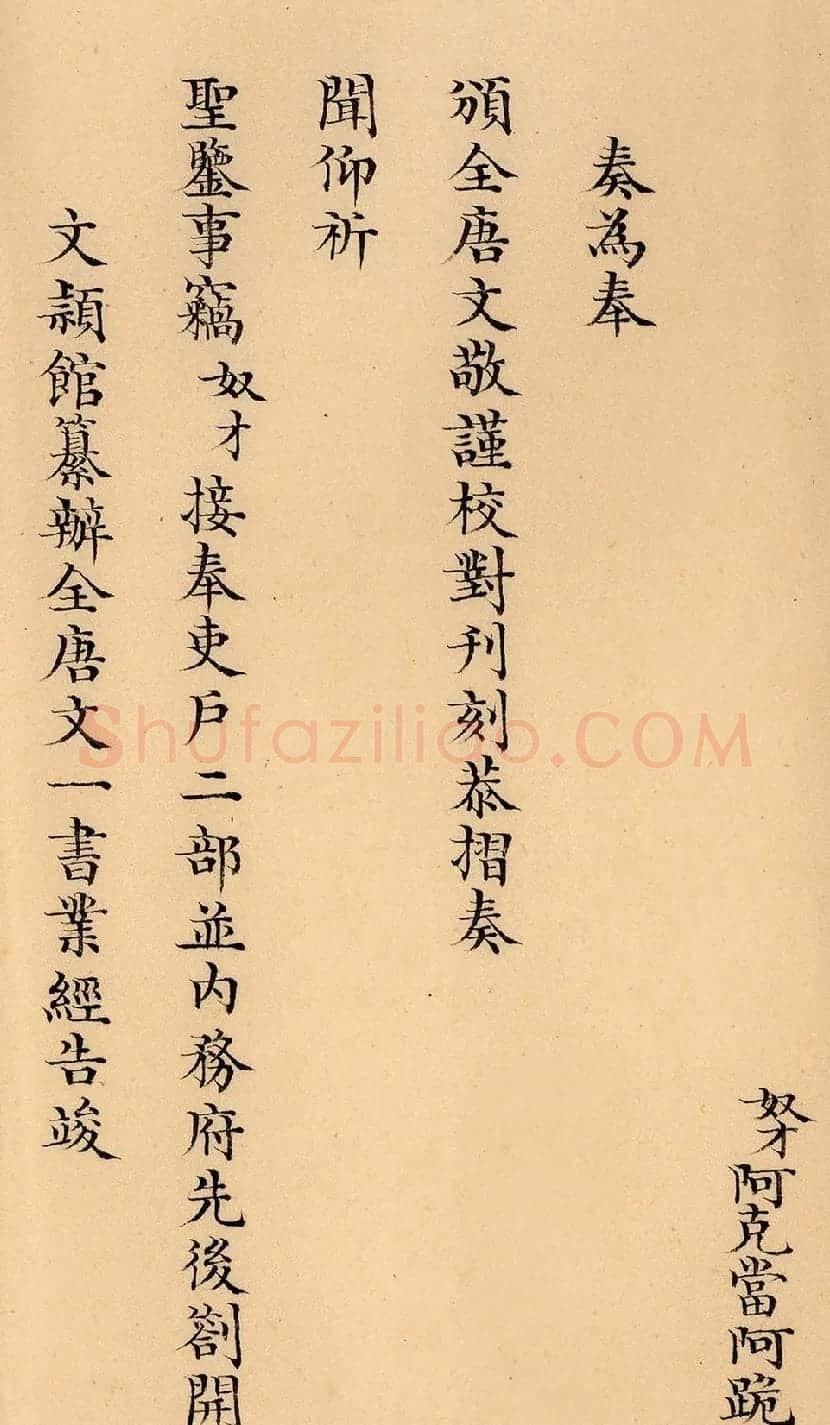 奴才阿克當阿跪
奏為奉
頒全唐文敬謹校對刊刻恭摺奏
聞仰祈
聖鑒事竊奴才接奉吏戶二部並內務府先後劄開
文穎館纂辦全唐文一書業經告竣
Shufaziliao.COM